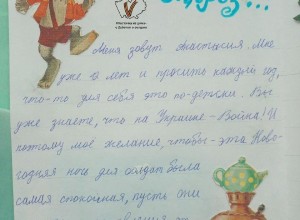 Мороз...
Меня зовут Анастасия. Мне
уже 12 лет и просить каждый год,
что-то для себя это по-детски. Вы
уже знаете, что на Украине - Война! И
поэтому моё желание, чтобы - эта Ново-
годняя ночь для солдат была
самая спокойная, пусть они